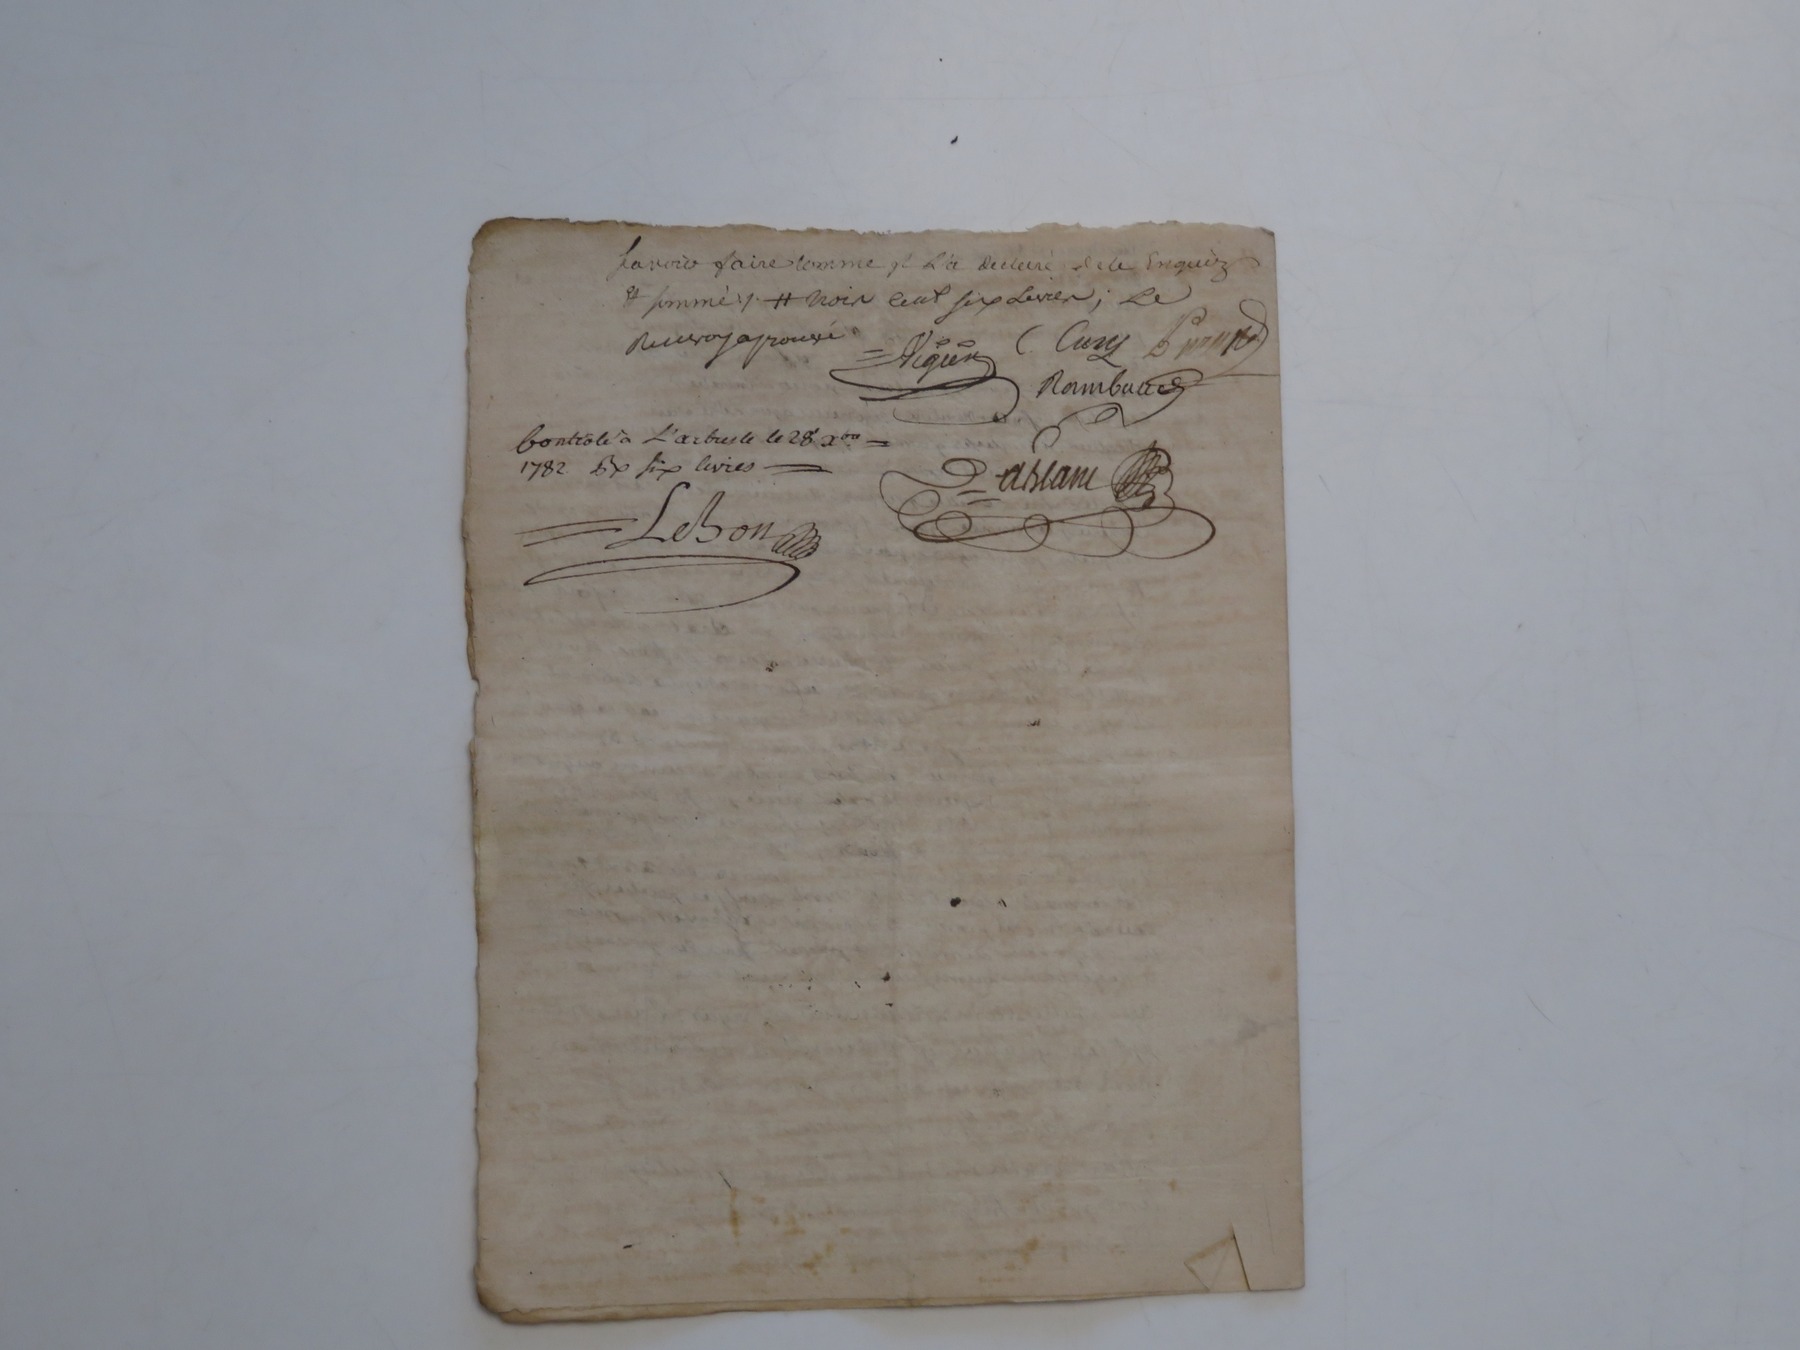 savoir faire comme il L'a declaré de ce Enquis
& sommé /. # trois cent six Livres; Le
Renvoy aprouvé
Viguier C. Cuzy
Rambaud
Controlé à L'arbresle le 28 xbre
1782 Rx six livres
Dablanc
LeBon